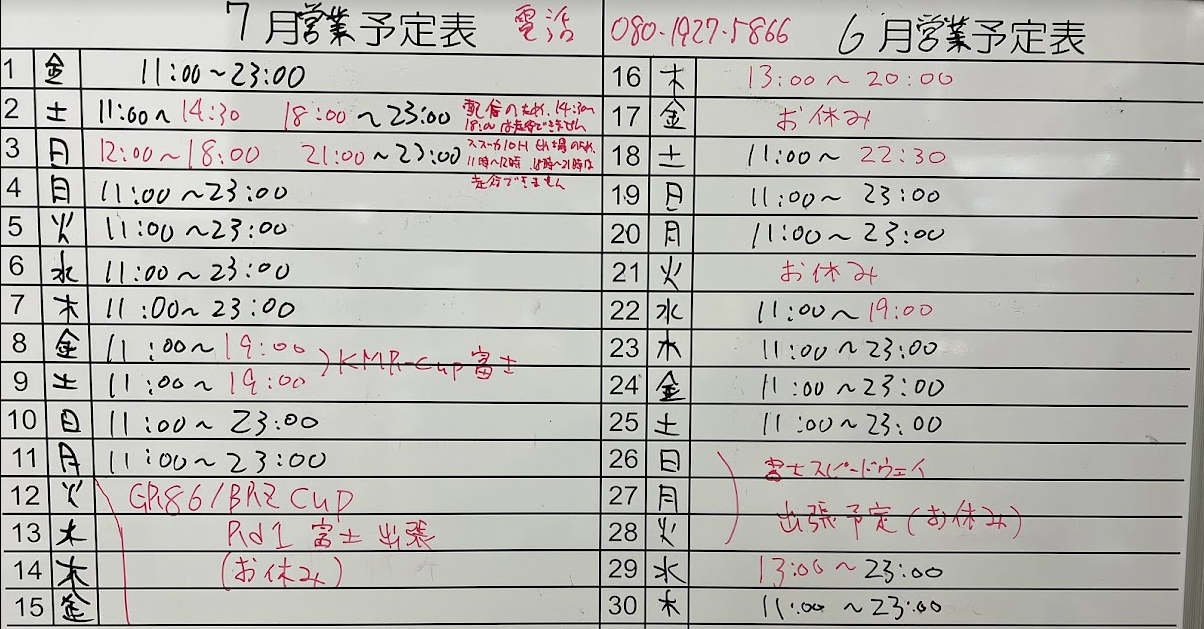 7月営業予定表 電話 080-1927-5866 6月営業予定表
1 金 11:00~23:00
2 土 11:00~14:30 18:00~23:00 配信のため、14:30~
18:00は走行できません
3 日 12:00~18:00 21:00~23:00
11時~12時 18時~21時は
走行できません
4 日 11:00~23:00
5 火 11:00~23:00
6 水 11:00~23:00
7 木 11:00~23:00
8 金 11:00~19:00
9 土 11:00~19:00
KMR-Cup富士
10 日 11:00~23:00
11 月 11:00~23:00
12 火 GR86/BRZ Cup
13 木 Rd1 富士 出張
14 木 (お休み)
15 金
16 木 13:00~20:00
17 金 お休み
18 土 11:00~22:30
19 月 11:00~23:00
20 月 11:00~23:00
21 火 お休み
22 水 11:00~19:00
23 木 11:00~23:00
24 金 11:00~23:00
25 土 11:00~23:00
26 日 富士スピードウェイ
27 月 出張予定(お休み)
28 火
29 水 13:00~23:00
30 木 11:00~23:00